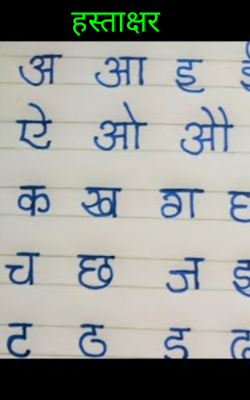 हस्ताक्षर
अ आ इ
ऐ ओ औ
क ख ग
च छ ज
ट ठ ड